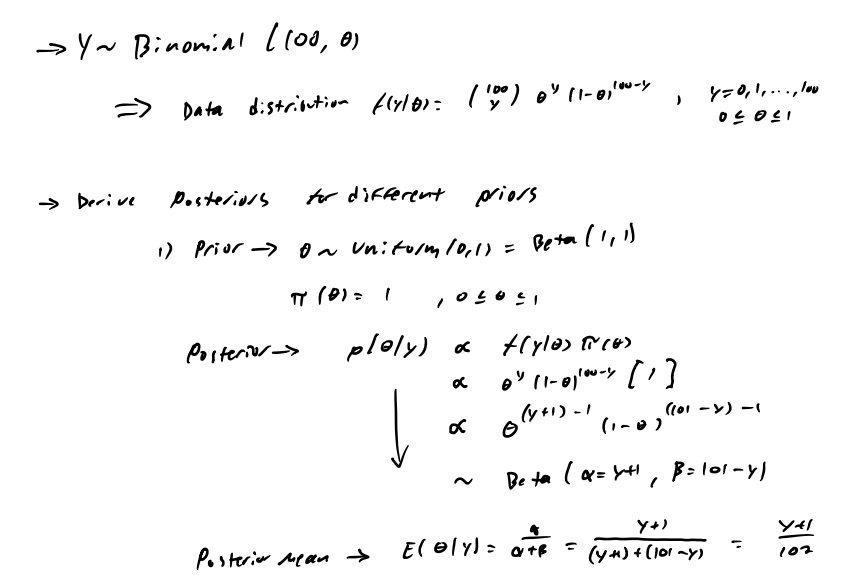 → Y ~ Binomial (100, θ)
⇒ Data distribution f(y|θ) = (100 y) θ^y (1-θ)^100-y , y=0,1,...,100
0 ≤ θ ≤ 1
→ Derive Posteriors for different priors
1) Prior → θ ~ Uniform(0,1) = Beta(1,1)
π(θ) = 1 , 0 ≤ θ ≤ 1
Posterior → p(θ|y) ∝ f(y|θ) π(θ)
∝ θ^y (1-θ)^100-y [1]
∝ θ^(y+1)-1 (1-θ)^(101-y)-1
~ Beta(α=y+1, β=101-y)
Posterior mean → E(θ|y) = α/(α+β) = (y+1)/((y+1)+(101-y)) = (y+1)/102